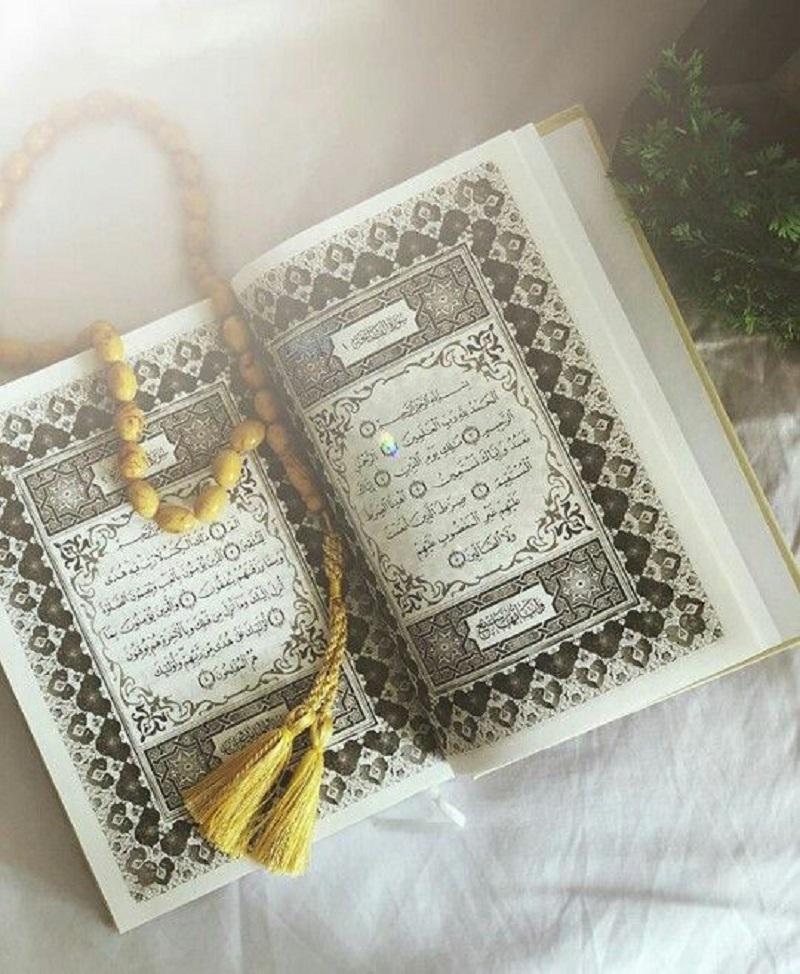 سُورَةُ الفَاتِحَةِ
بِسْمِ اللَّهِ الرَّحْمَٰنِ الرَّحِيمِ ١
الْحَمْدُ لِلَّهِ رَبِّ الْعَالَمِينَ ٢ الرَّحْمَٰنِ
الرَّحِيمِ ٣ مَٰلِكِ يَوْمِ الدِّينِ ٤ إِيَّاكَ
نَعْبُدُ وَإِيَّاكَ نَسْتَعِينُ ٥ اهْدِنَا الصِّرَاطَ
الْمُسْتَقِيمَ ٦ صِرَاطَ الَّذِينَ أَنْعَمْتَ
عَلَيْهِمْ غَيْرِ الْمَغْضُوبِ عَلَيْهِمْ
وَلَا الضَّالِّينَ ٧
الم ١ ذَٰلِكَ الْكِتَابُ لَا رَيْبَ فِيهِ هُدًى
لِلْمُتَّقِينَ ٢ الَّذِينَ يُؤْمِنُونَ بِالْغَيْبِ وَيُقِيمُونَ الصَّلَوٰةَ
وَمِمَّا رَزَقْنَٰهُمْ يُنْفِقُونَ ٣ وَالَّذِينَ يُؤْمِنُونَ بِمَا
أُنْزِلَ إِلَيْكَ وَمَا أُنْزِلَ مِنْ قَبْلِكَ وَبِالْآخِرَةِ هُمْ يُوقِنُونَ ٤
أُولَٰئِكَ عَلَىٰ هُدًى مِنْ رَبِّهِمْ وَأُولَٰئِكَ
هُمُ الْمُفْلِحُونَ ٥